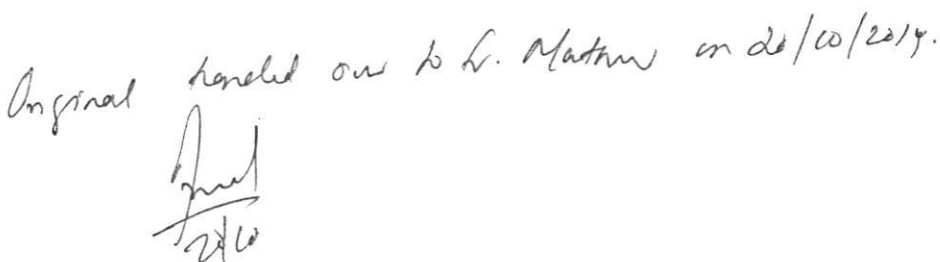 Original handed over to Mathur on 20/10/2014.
20/10